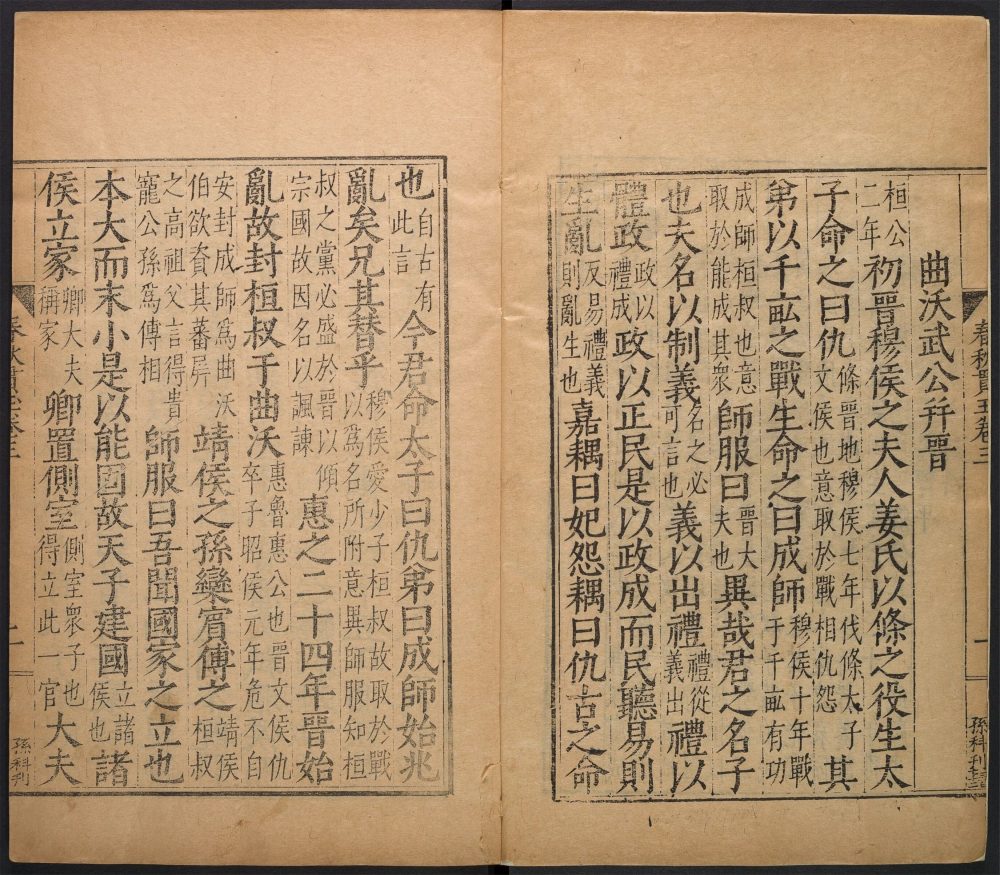 春秋貫玉卷三
一
孫科刊
曲沃武公幷晉
桓公二年初晉穆侯之夫人姜氏以條之役生太
子命之曰仇條晉地穆侯七年伐條太子文侯也意取於戰相仇怨其
弟以千畝之戰生命之曰成師穆侯十年戰于千畝有功
成師桓叔也意取於能成其衆師服曰晉大夫也異哉君之名子
也夫名以制義名之必可言也義以出禮禮從義出禮以
體政政以禮成政以正民是以政成而民聽易則
生亂反易禮義則亂生也嘉耦曰妃怨耦曰仇古之命
也自古有此言今君命太子曰仇弟曰成師始兆
亂矣兄其替乎穆侯愛少子桓叔故取於戰以爲名所附意異師服知桓
叔之黨必盛於晉以傾宗國故因名以諷諫惠之二十四年晉始
亂故封桓叔于曲沃惠魯惠公也晉文侯仇卒子昭侯元年危不自
安封成師爲曲沃伯欲資其蕃屏靖侯之孫欒賓傅之靖侯桓叔
之高祖父言得貴寵公孫爲傅相師服曰吾聞國家之立也
本大而末小是以能固故天子建國立諸侯也諸
侯立家卿大夫稱家卿置側室側室衆子也得立此一官大夫
春秋貫玉卷三
一
孫科刊